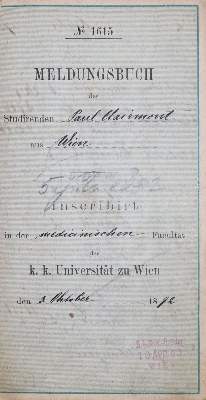 № 1615
MELDUNGSBUCH
des
Studirenden Paul Clairmont
aus Wien
inscribirt
in der medicinischen Facultät
der
k. k. Universität zu Wien
den 3. Oktober 1892